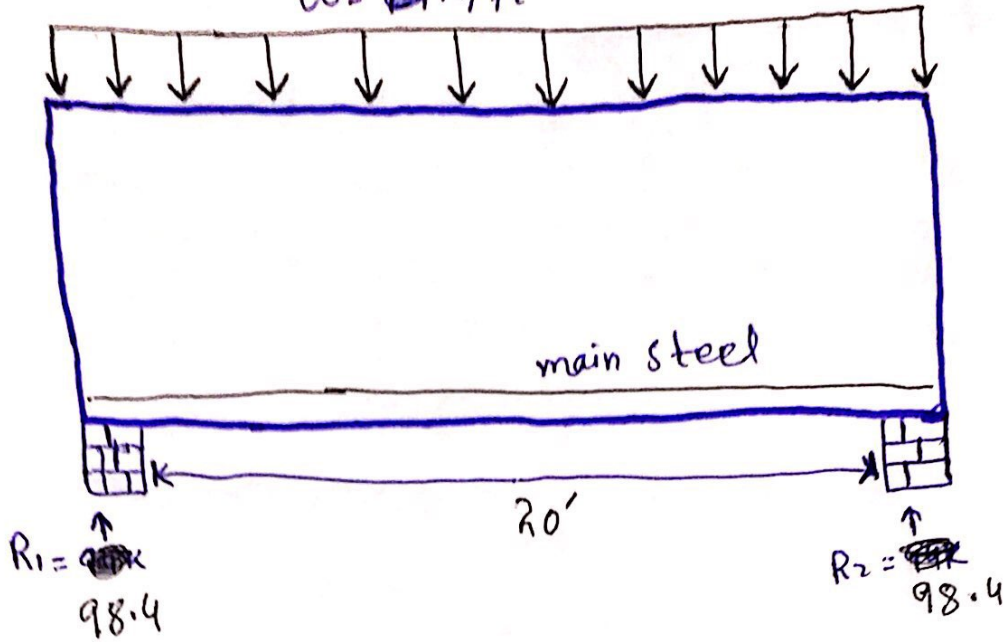 main steel
20'
R₁ =
98.4
R₂ =
98.4